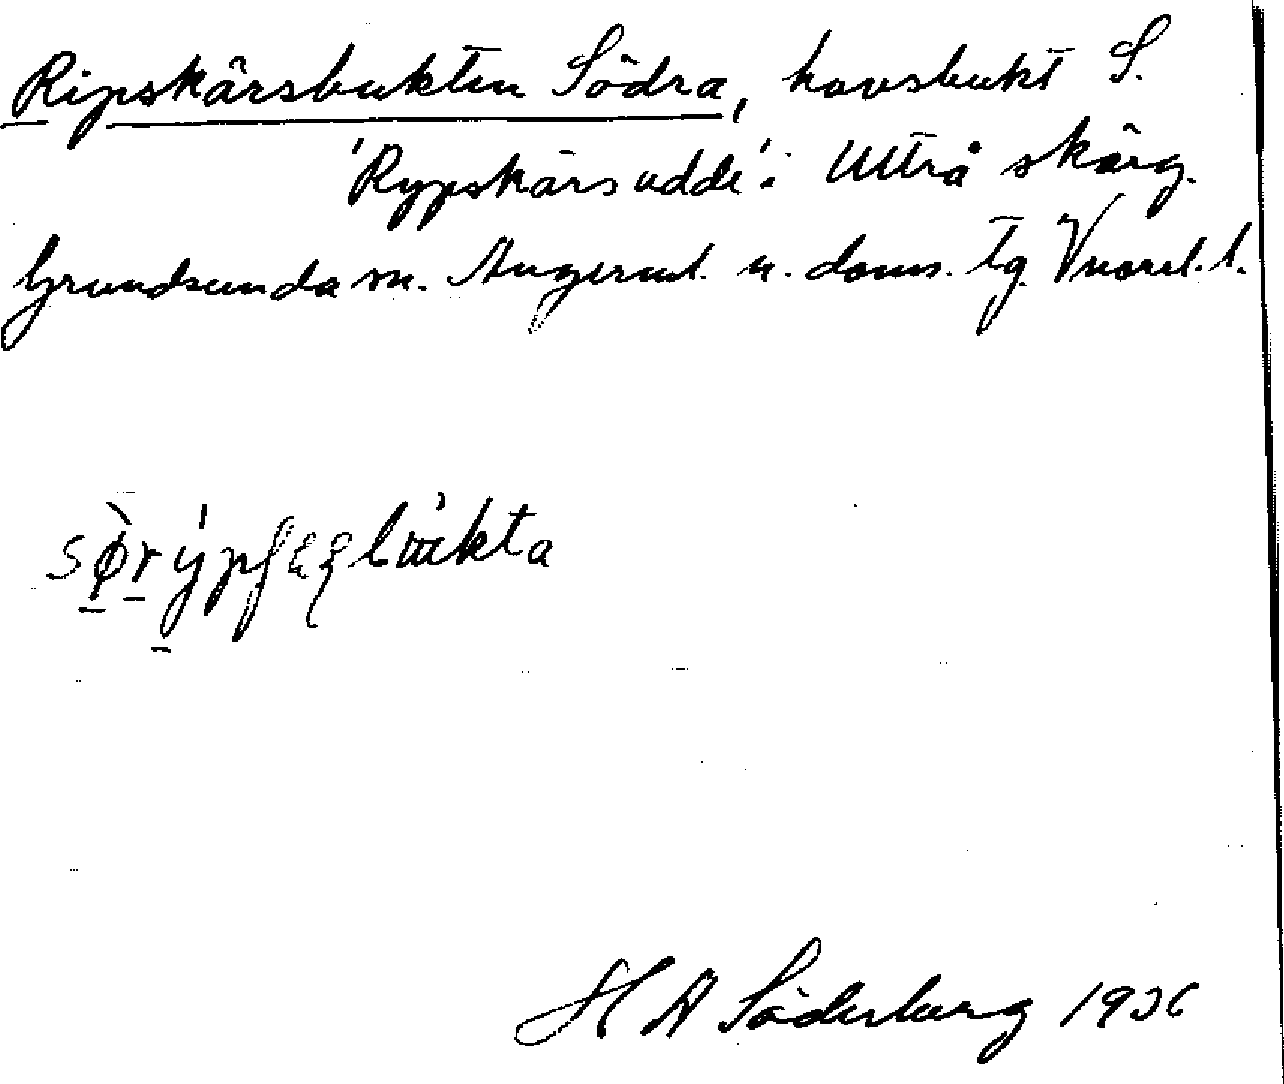 Ripskärsbukten Södra, havsbukt S.
'Rypskärsudde'. Utträ skärg.
Grundsunda sn. Ångerml. n. doms. tg. Vnorrl. l.
sø̀rýpʃæʂbʉ́kta
H A Söderberg 1936